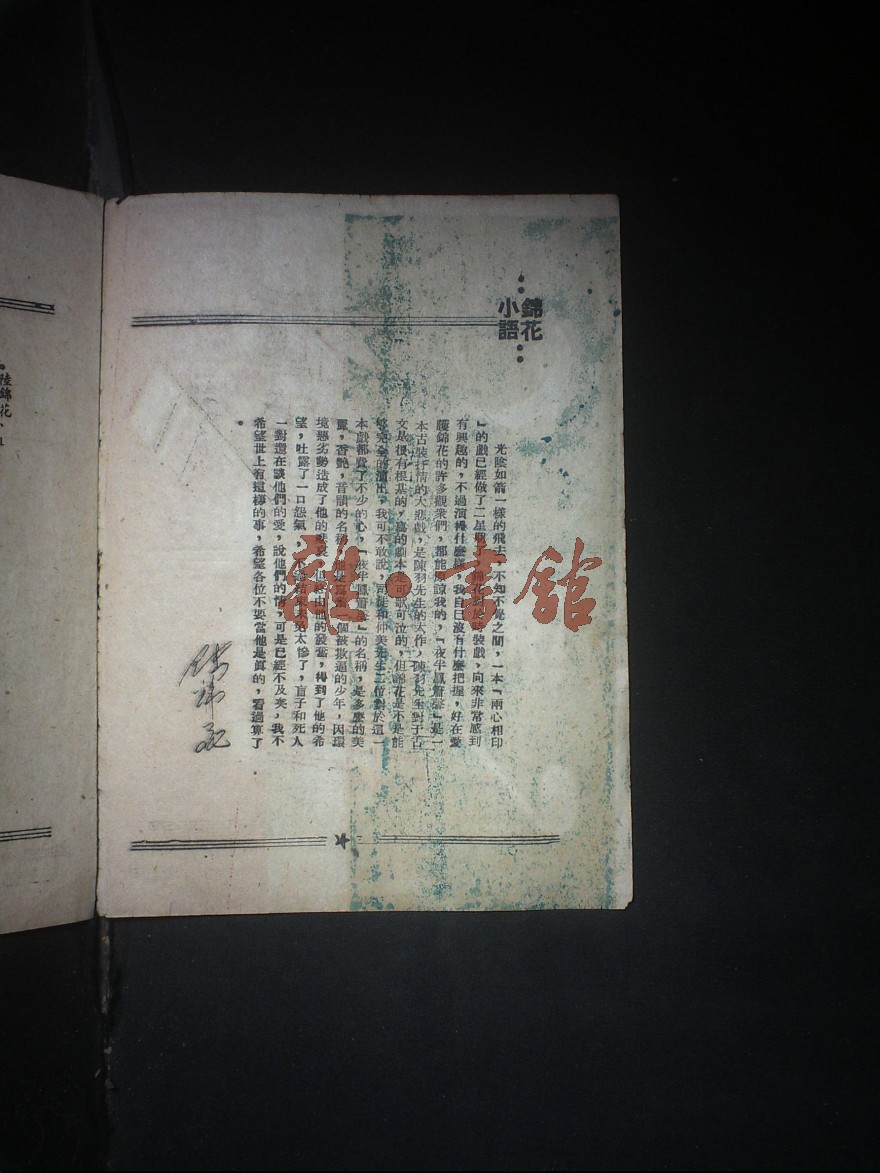 錦花
小語
光陰如箭一樣的飛去，不知不覺之間，一本「兩心相印
」的戲已經做了二星期了，錦花對於時裝戲，向來非常感到
有興趣的，不過演得什麼樣，我自己沒有什麼把握，好在愛
護錦花的許多觀衆們，都能原諒我的，「夜半鳳簫聲」是一
本古裝抒情的大悲戲，是陳羽先生的大作，陳羽先生對于古
文是很有根基的，寫的劇本是可歌可泣的，但錦花是不是能
够完全的演出，我可不敢說，司徒和仲美先生二位對於這一
本戲都費了不少的心，「夜半鳳簫聲」的名稱，是多麼的美
麗，香艷，音韻的名稱，他是寫出一個被欺逼的少年，因環
境惡劣勢造成了他的悲哀，但終由他的發奮，得到了他的希
望，吐露了一口怨氣，不過結束未免太慘了，盲子和死人
一對還在談他們的愛，說他們的情，可是已經不及矣，我不
希望世上有這樣的事，希望各位不要當他是眞的，看過算了
。
陸錦花
龍·書館